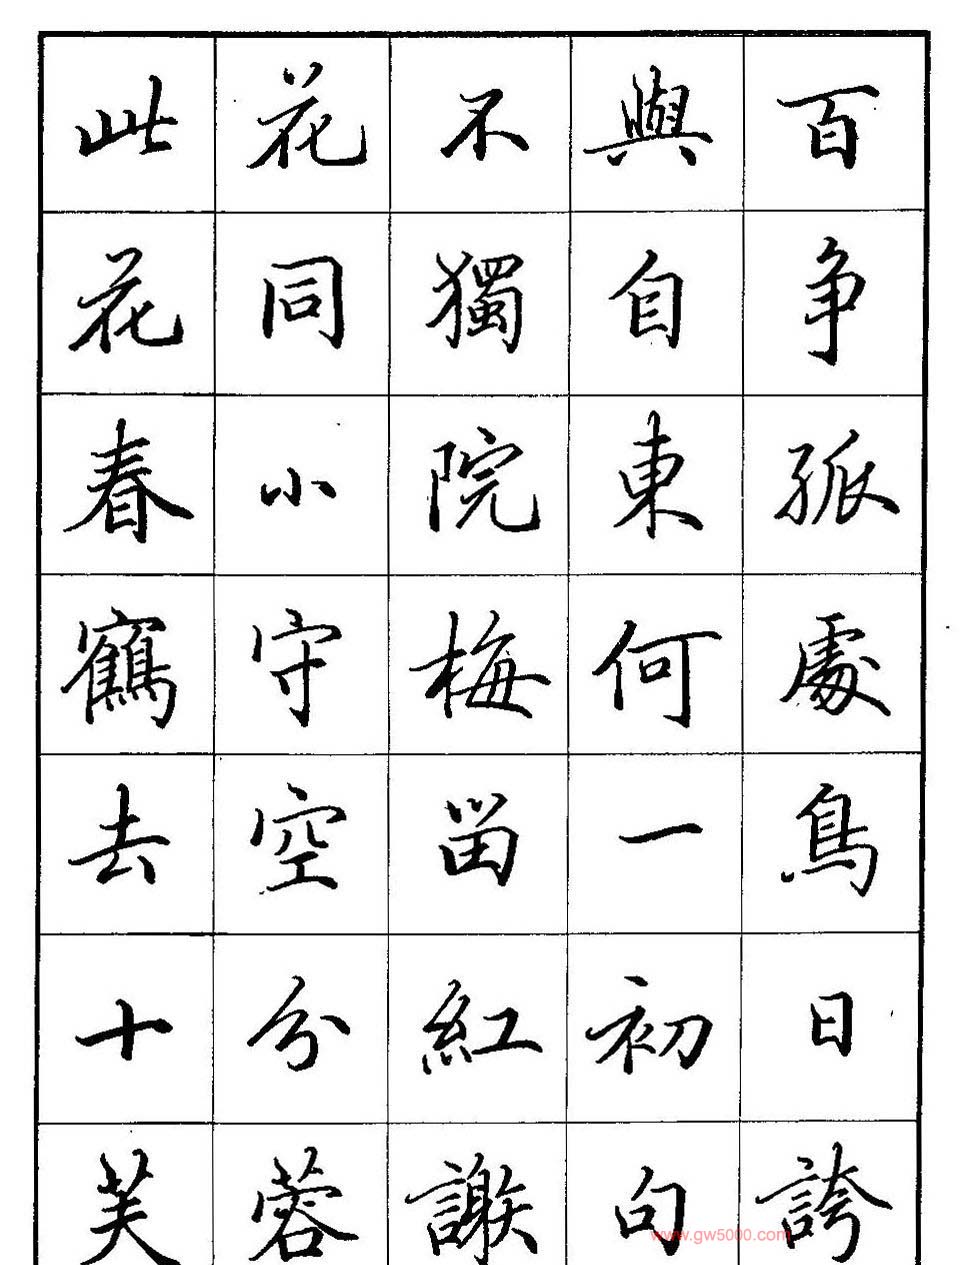 此花不與百
花同獨自争
春小院東孤
鶴守梅何處
去空留一鳥
十分紅初日
芙蓉謝句誇
www.gw5000.com